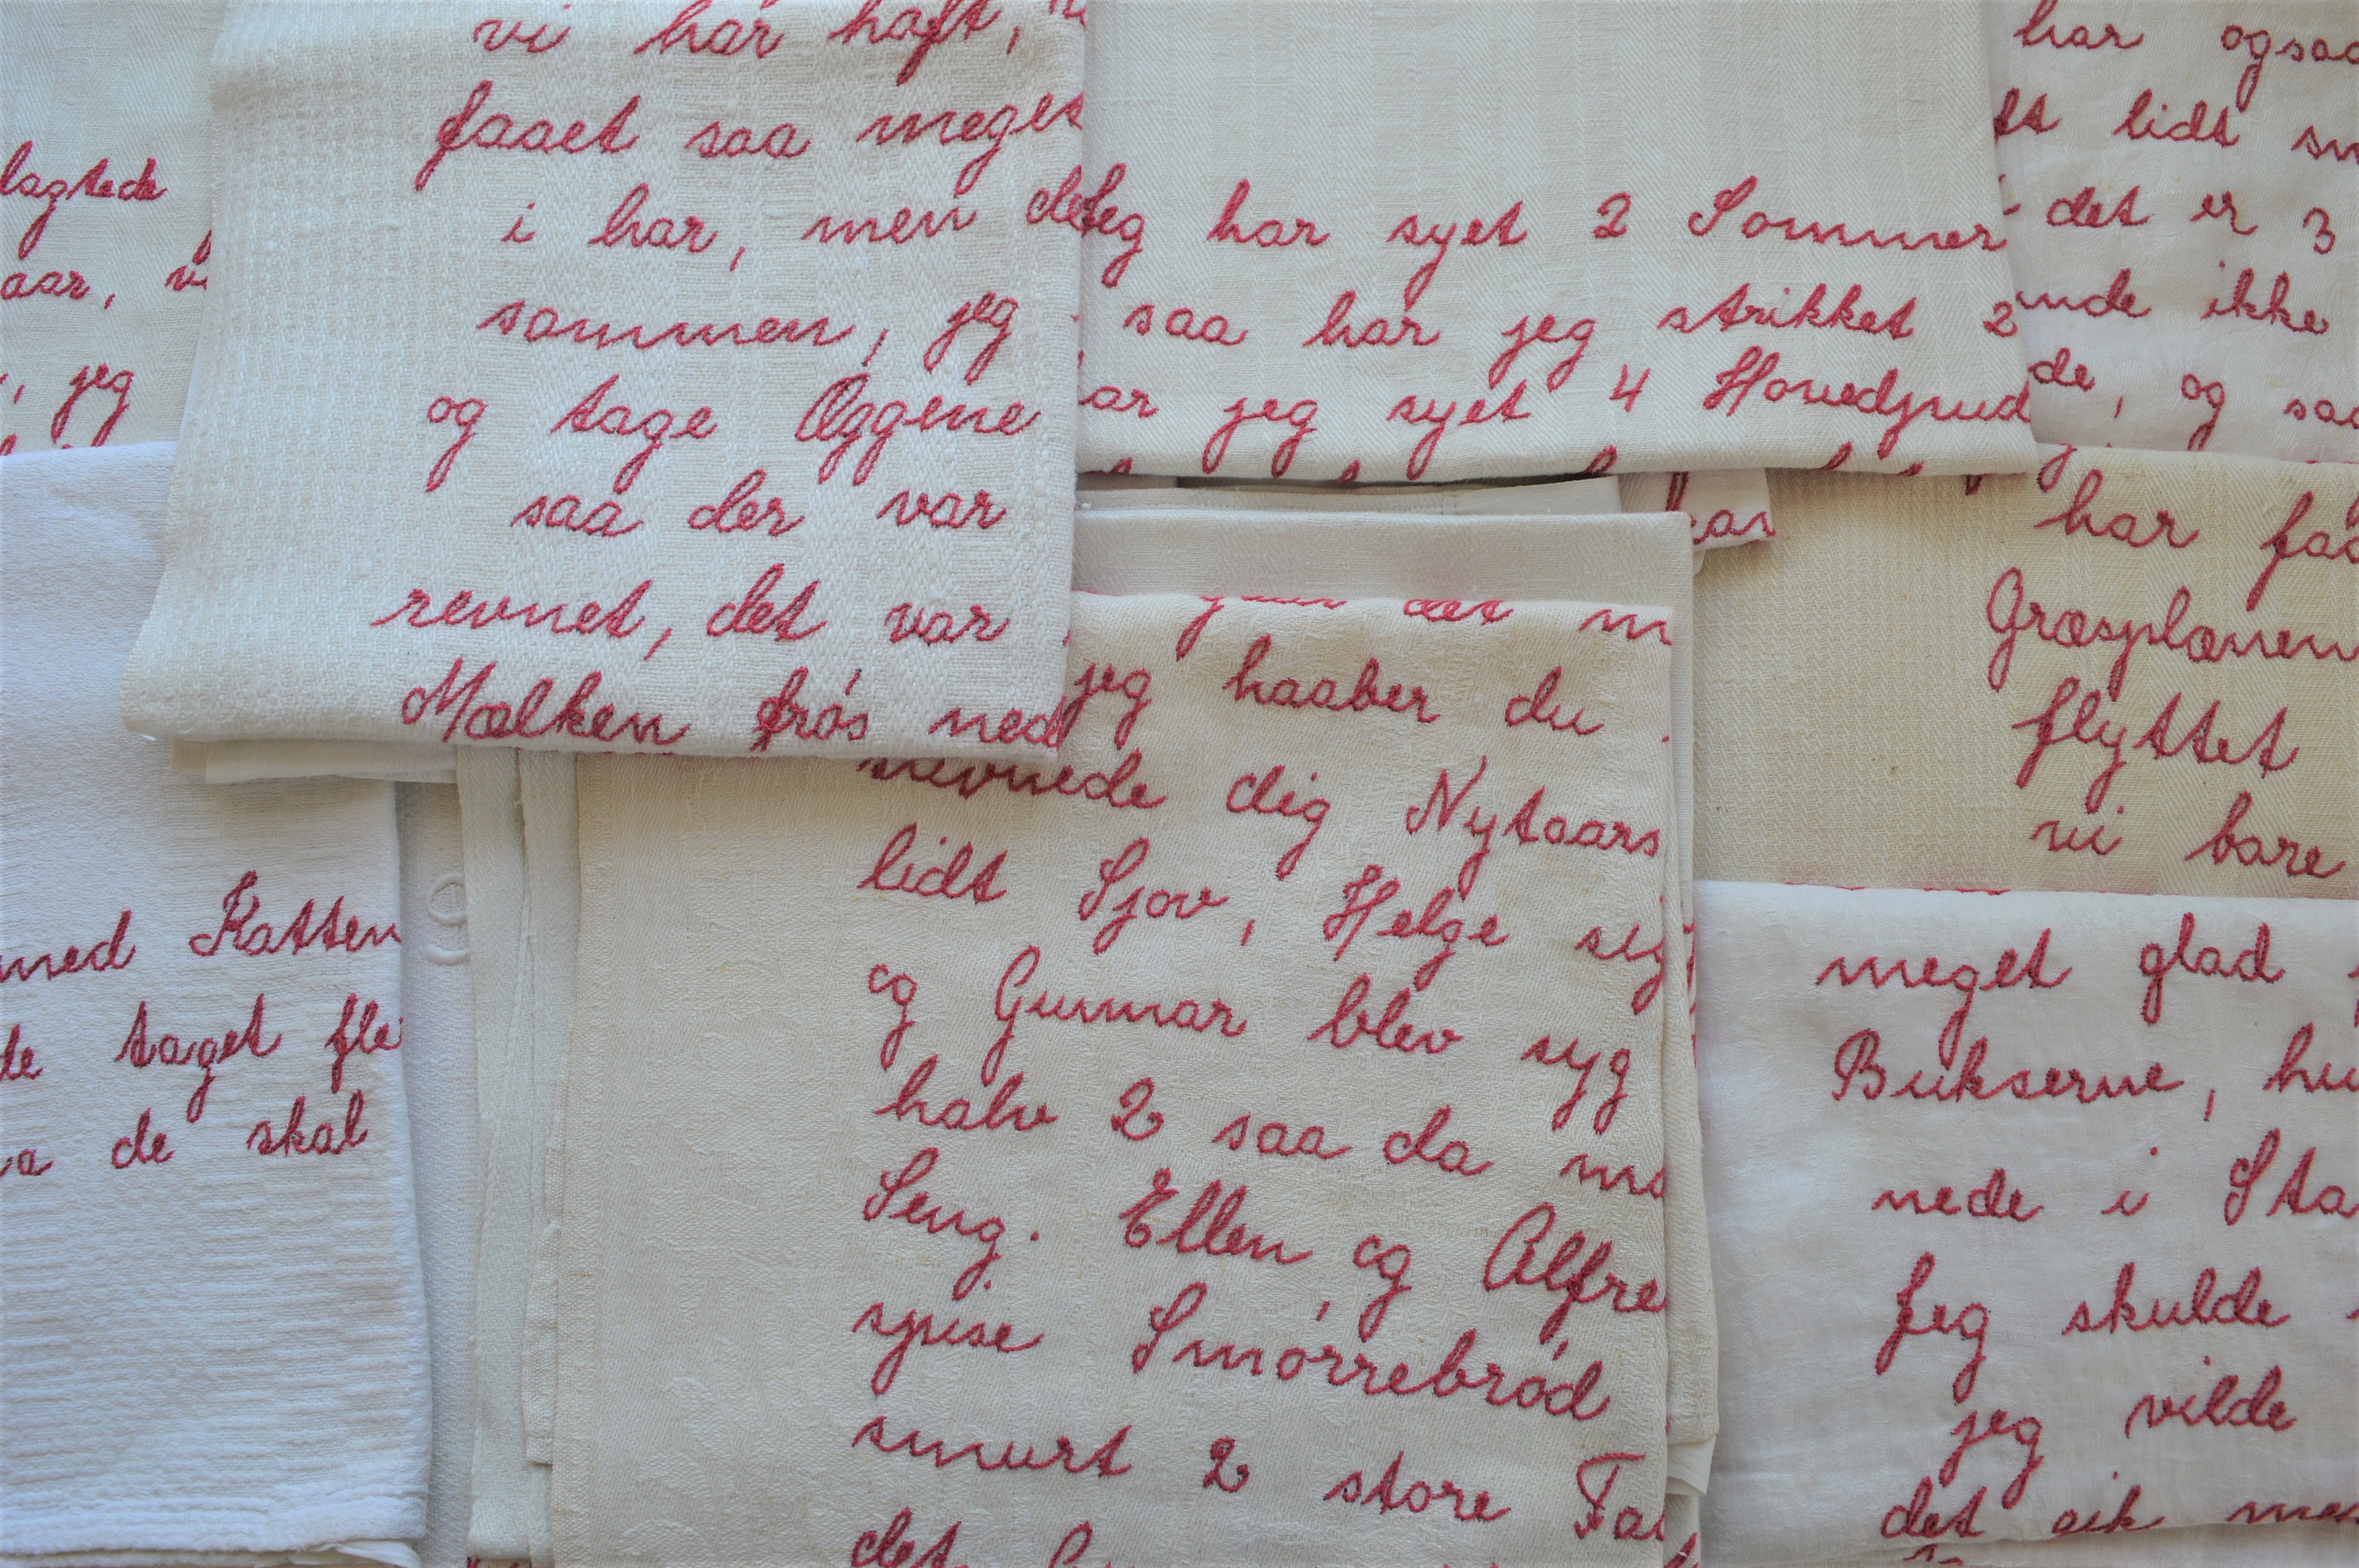 lagtede
aar,
jeg
vi har haft,
faaet saa meget
i har, men det
sammen, jeg
og tage Æggene
saa der var
revnet, det var
Mælken frós ned
Jeg har syet 2 Sommer
saa har jeg strikket 2
jeg syet 4 Hovedpud
har ogsaa
lidt
det er 3
ikke
og saa
har
Græsplænen
flyttet
vi bare
med Katten
taget
de skal
det
jeg haaber du
dig Nytaars
lidt Sjov, Helge
og Gunnar blev syg
halv 2 saa da
Seng. Ellen og Alfre
spise Smórrebród
smurt 2 store
det
meget glad
Bukserne,
nede i
Jeg skulde
jeg vilde
det gik